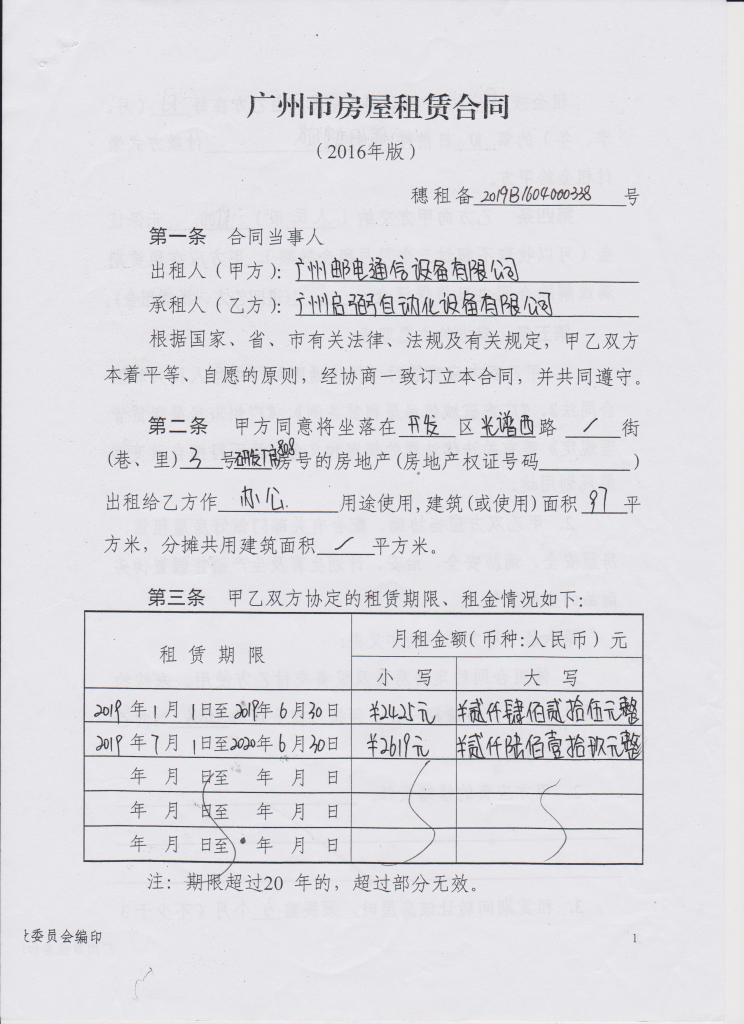 广州市房屋租赁合同
（2016年版）
穗租备2019B1604000338号
第一条 合同当事人
出租人（甲方）：广州邮电通信设备有限公司
承租人（乙方）：广州启弼自动化设备有限公司
根据国家、省、市有关法律、法规及有关规定，甲乙双方
本着平等、自愿的原则，经协商一致订立本合同，并共同遵守。
第二条 甲方同意将坐落在 开发 区 光谱西 路 / 街
(巷、里) 3 号研发厂房808房号的房地产(房地产权证号码 )
出租给乙方作 办公 用途使用，建筑(或使用)面积 97 平
方米，分摊共用建筑面积 / 平方米。
第三条 甲乙双方协定的租赁期限、租金情况如下：
租赁期限 月租金额(币种：人民币)元
小写 大写
2019年1月1日至2019年6月30日 ¥2425元 ¥贰仟肆佰贰拾伍元整
2019年7月1日至2020年6月30日 ¥2619元 ¥贰仟陆佰壹拾玖元整
年 月 日至 年 月 日
年 月 日至 年 月 日
年 月 日至 年 月 日
注：期限超过20 年的，超过部分无效。
委员会编印 1